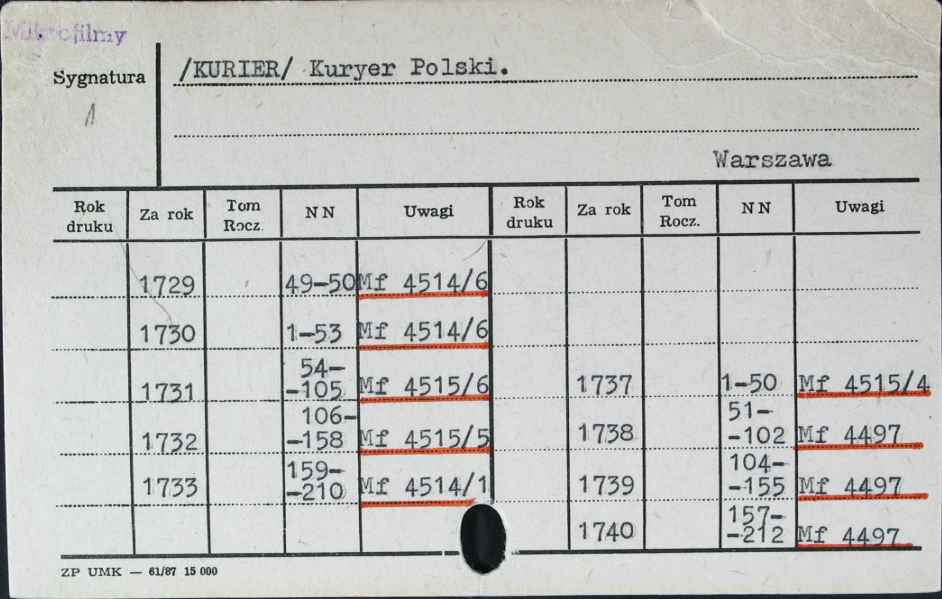 Mikrofilmy
Sygnatura
1
/KURIER/ Kuryer Polski.
Warszawa
Rok druku Za rok Tom Rocz. NN Uwagi Rok druku Za rok Tom Rocz. NN Uwagi
1729 49-50 Mf 4514/6
1730 1-53 Mf 4514/6
1731 54--105 Mf 4515/6 1737 1-50 Mf 4515/4
1732 106--158 Mf 4515/5 1738 51--102 Mf 4497
1733 159--210 Mf 4514/1 1739 104--155 Mf 4497
1740 157--212 Mf 4497
ZP UMK — 61/87 15 000